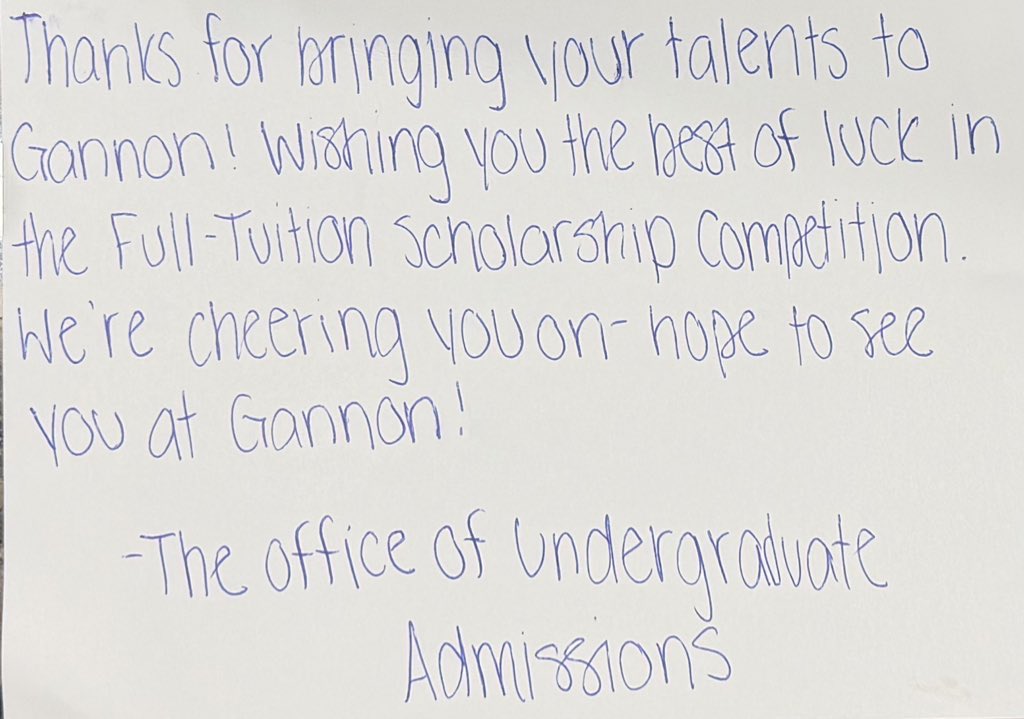 Thanks for bringing your talents to
Gannon! Wishing you the best of luck in
the Full-Tuition Scholarship Competition.
We're cheering you on- hope to see
you at Gannon!
-The Office of Undergraduate
Admissions